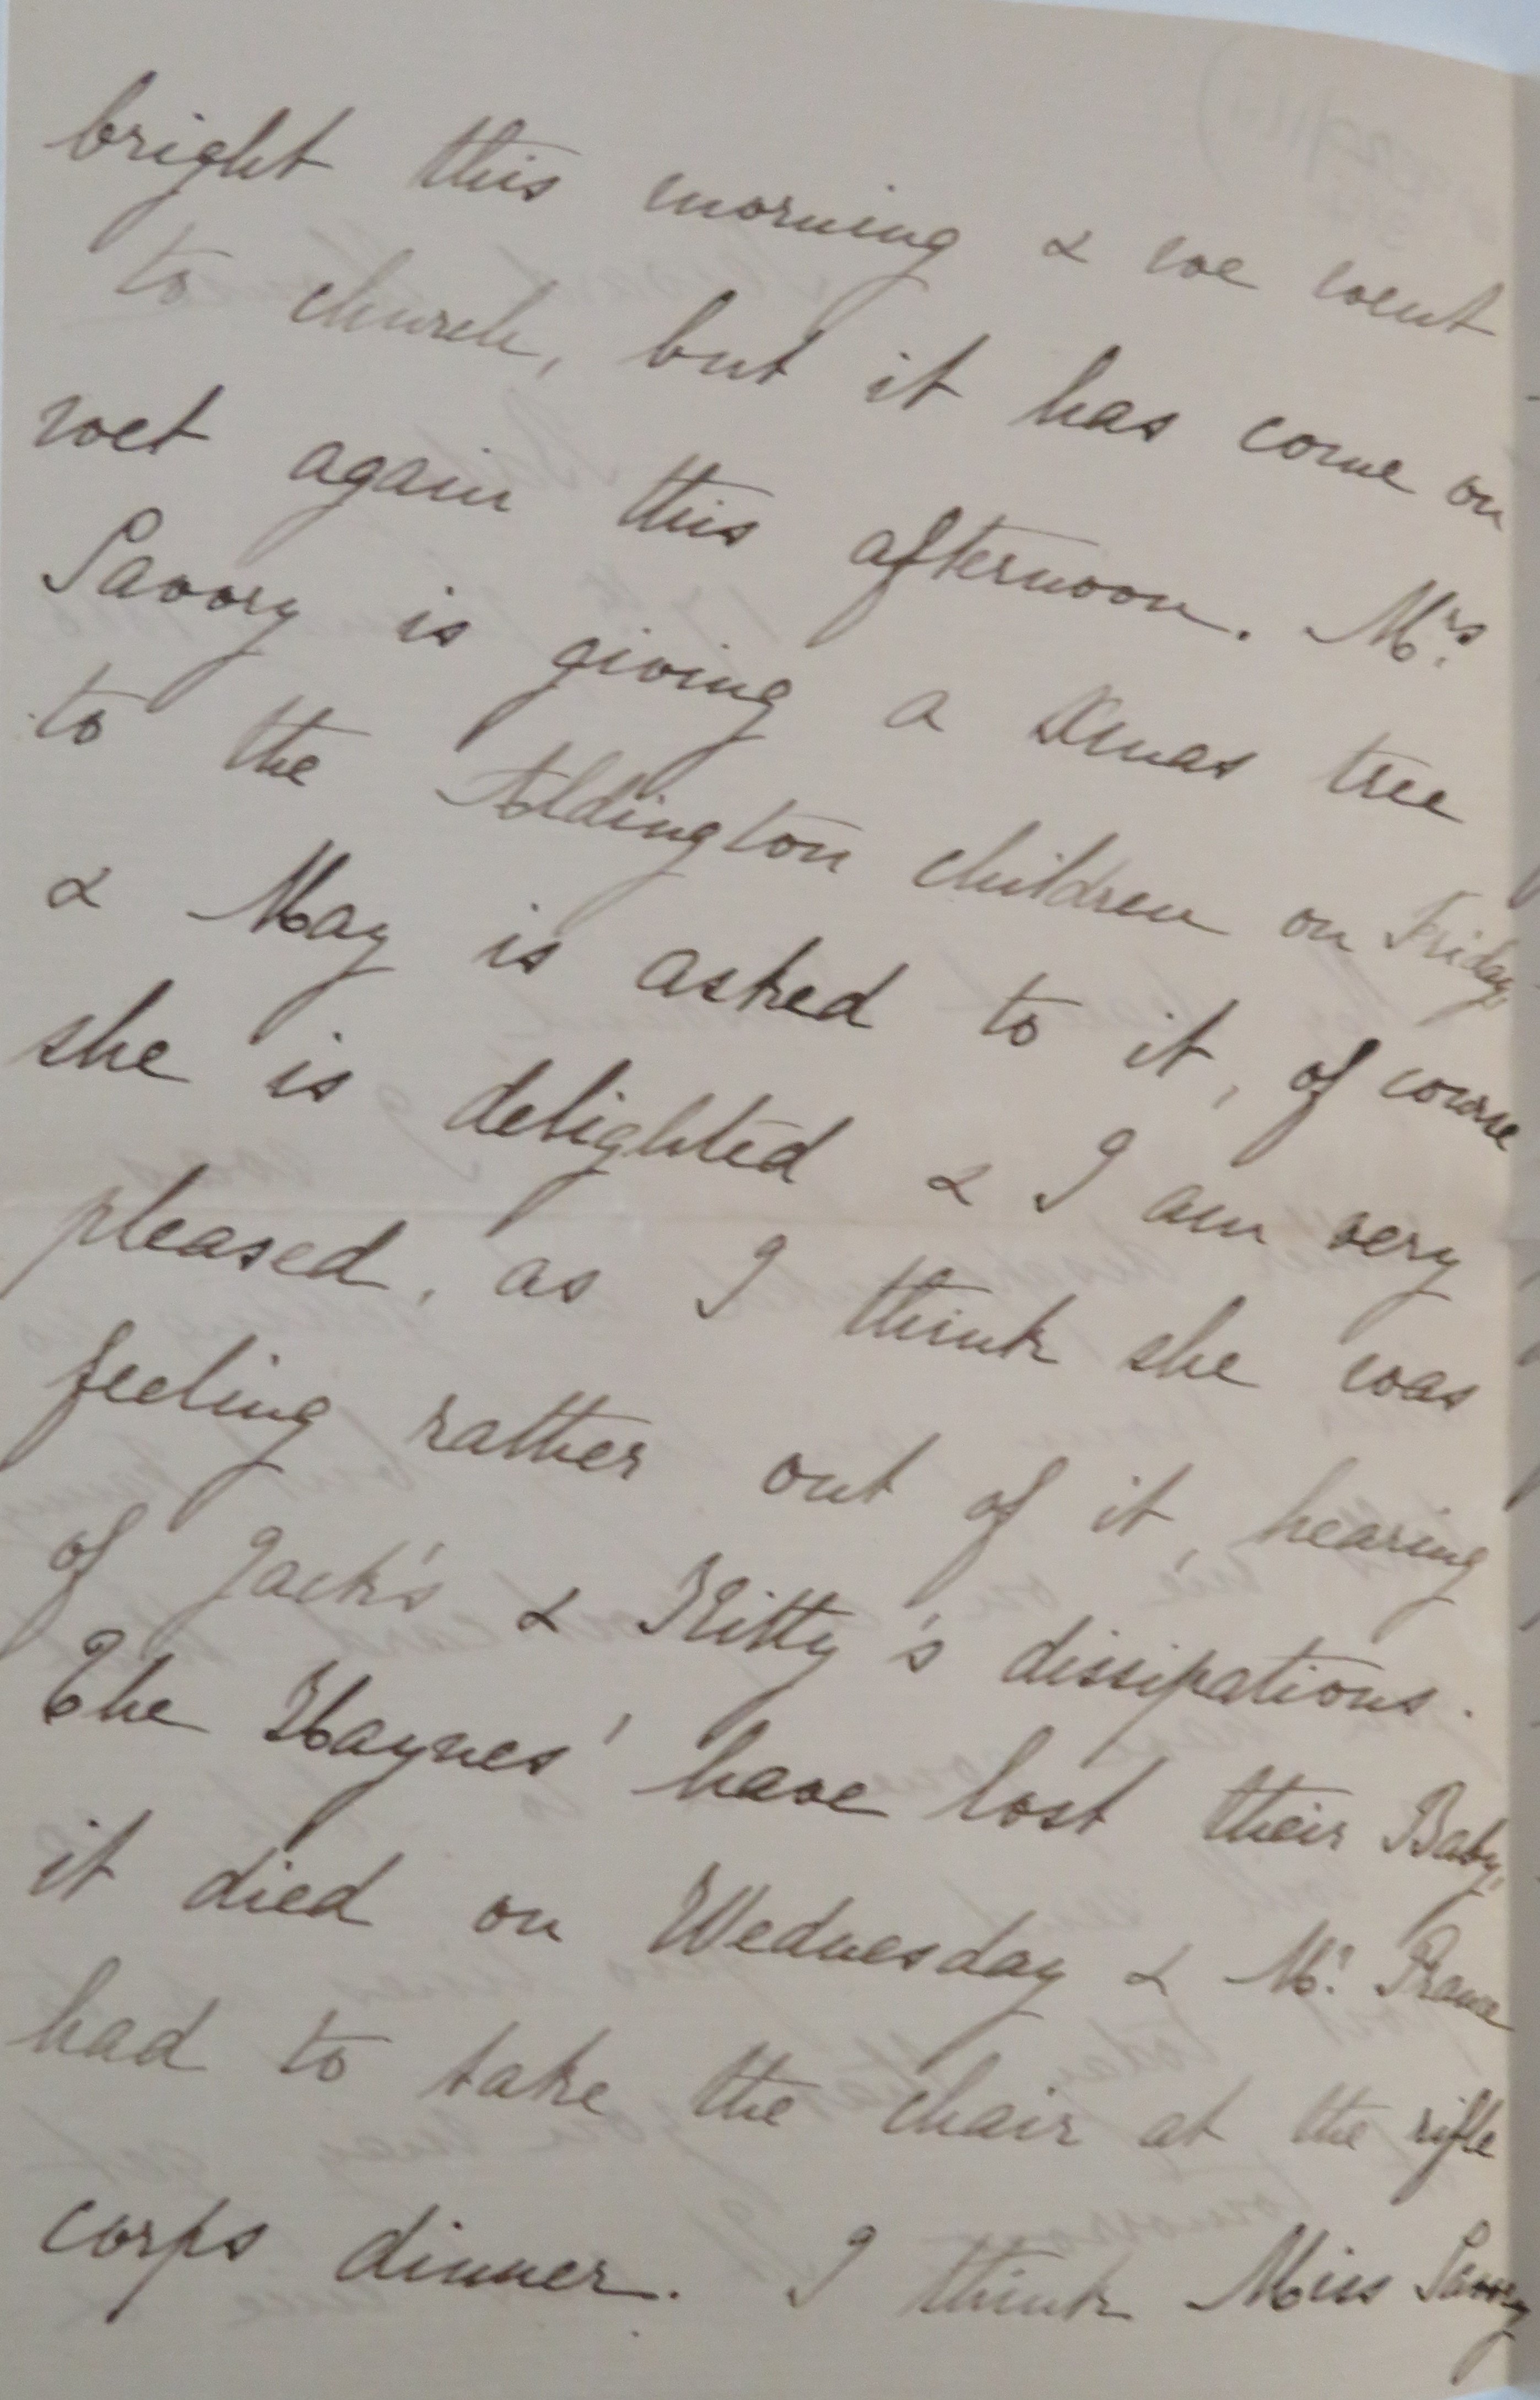 bright this morning & we went
to church, but it has come on
wet again this afternoon. Mrs.
Savory is giving a Xmas tree
to the Aldington children on Friday,
& May is asked to it, of course
she is delighted & I am very
pleased, as I think she was
feeling rather out of it, hearing
of Jack's & Kitty's dissipations.
The Haynes' have lost their Baby,
it died on Wednesday & Mr.
had to take the chair at the rifle
corps dinner. I think Miss Savory